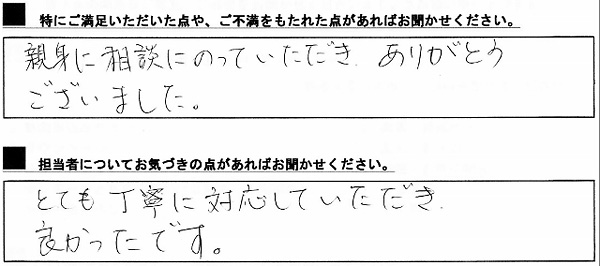 ■ 特にご満足いただいた点や、ご不満をもたれた点があればお聞かせください。
親身に相談にのっていただき、ありがとう
ございました。
■ 担当者についてお気づきの点があればお聞かせください。
とても丁寧に対応していただき、
良かったです。